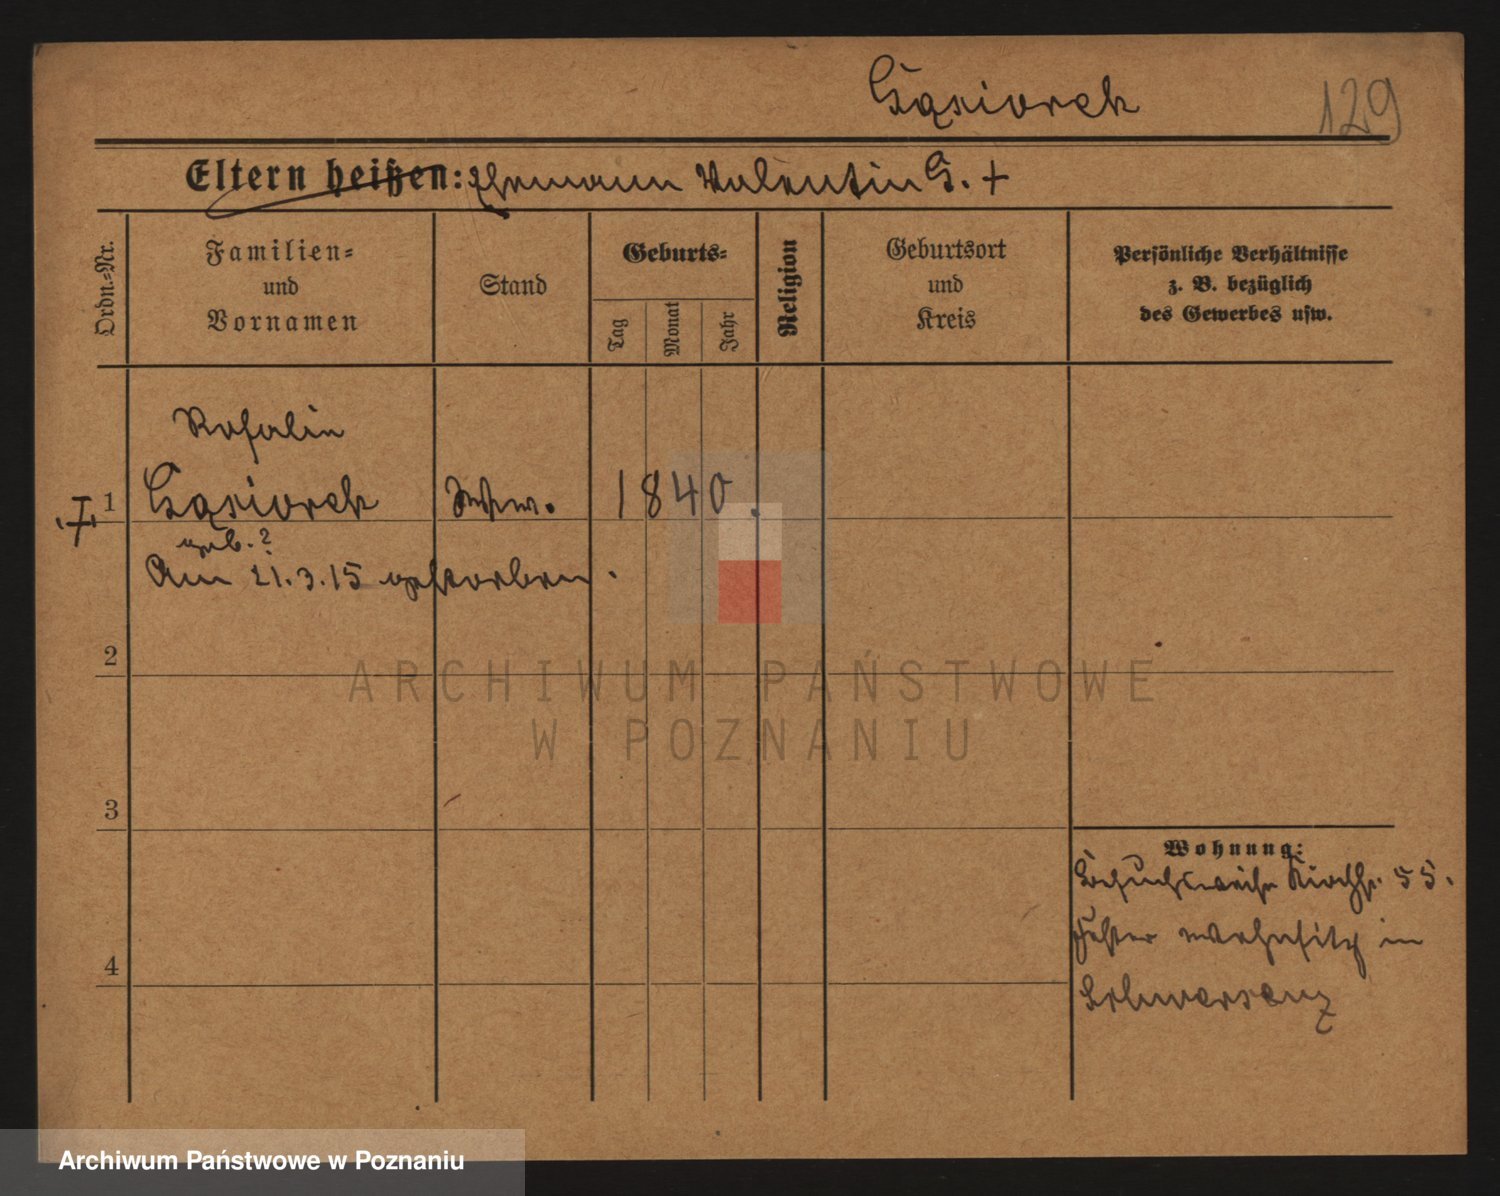 Gąsiorek
129
Eltern heißen: Ehemann Valentin G. +
Ordn.=Nr.
Familien=
und
Vornamen
Stand
Geburts=
Tag
Monat
Jahr
Religion
Geburtsort
und
Kreis
Persönliche Verhältnisse
z. B. bezüglich
des Gewerbes usw.
Rosalie
1 Gąsiorek Wwe. 1840.
geb. ?
Am 21.3.15 gestorben.
2
ARCHIWUM PAŃSTWOWE
W POZNANIU
3
Wohnung:
Besuchsweise Kirchstr. 55.
fester Wohnsitz in
4
Schwersenz
Archiwum Państwowe w Poznaniu